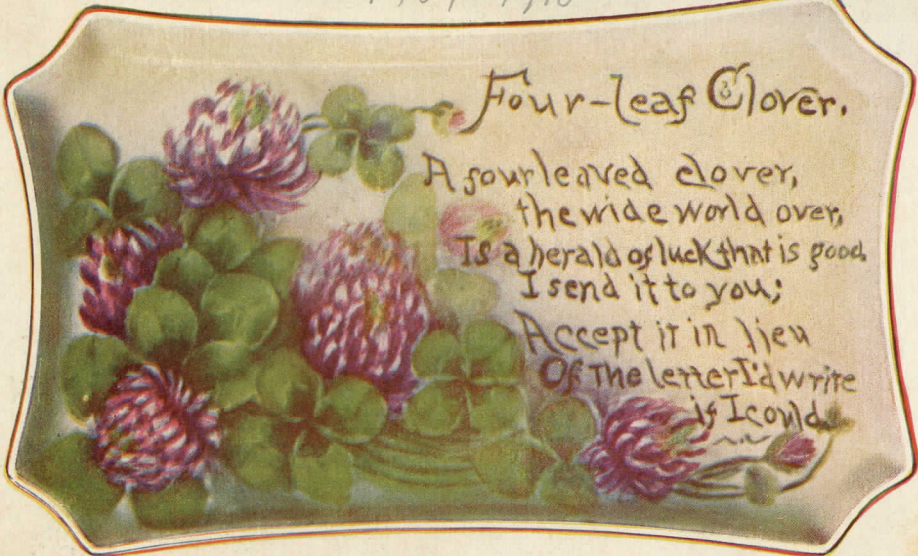 Four-leaf Clover.
A four leaved clover,
the wide world over,
Is a herald of luck that is good,
I send it to you;
Accept it in lieu
Of The letter I'd write
if I could.